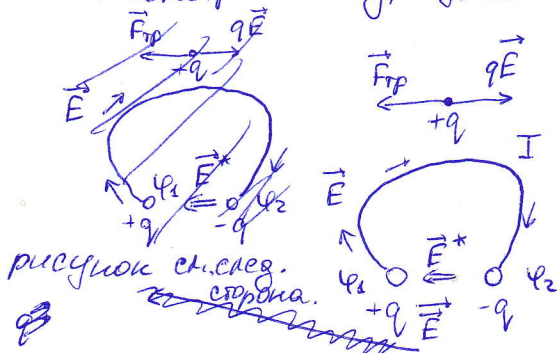 F⃗тр qE⃗
+q
E⃗
φ₁ E⃗* φ₂
+q -q
рисунок см.след.
сторона.
F⃗тр qE⃗
+q
I
E⃗
φ₁ E⃗* φ₂
+q E⃗ -q